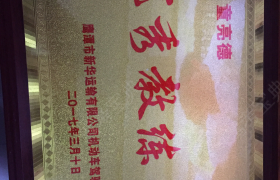 童亮德
秀教练
鹰潭市新华运输有限公司机动车驾
二〇一七年三月十日